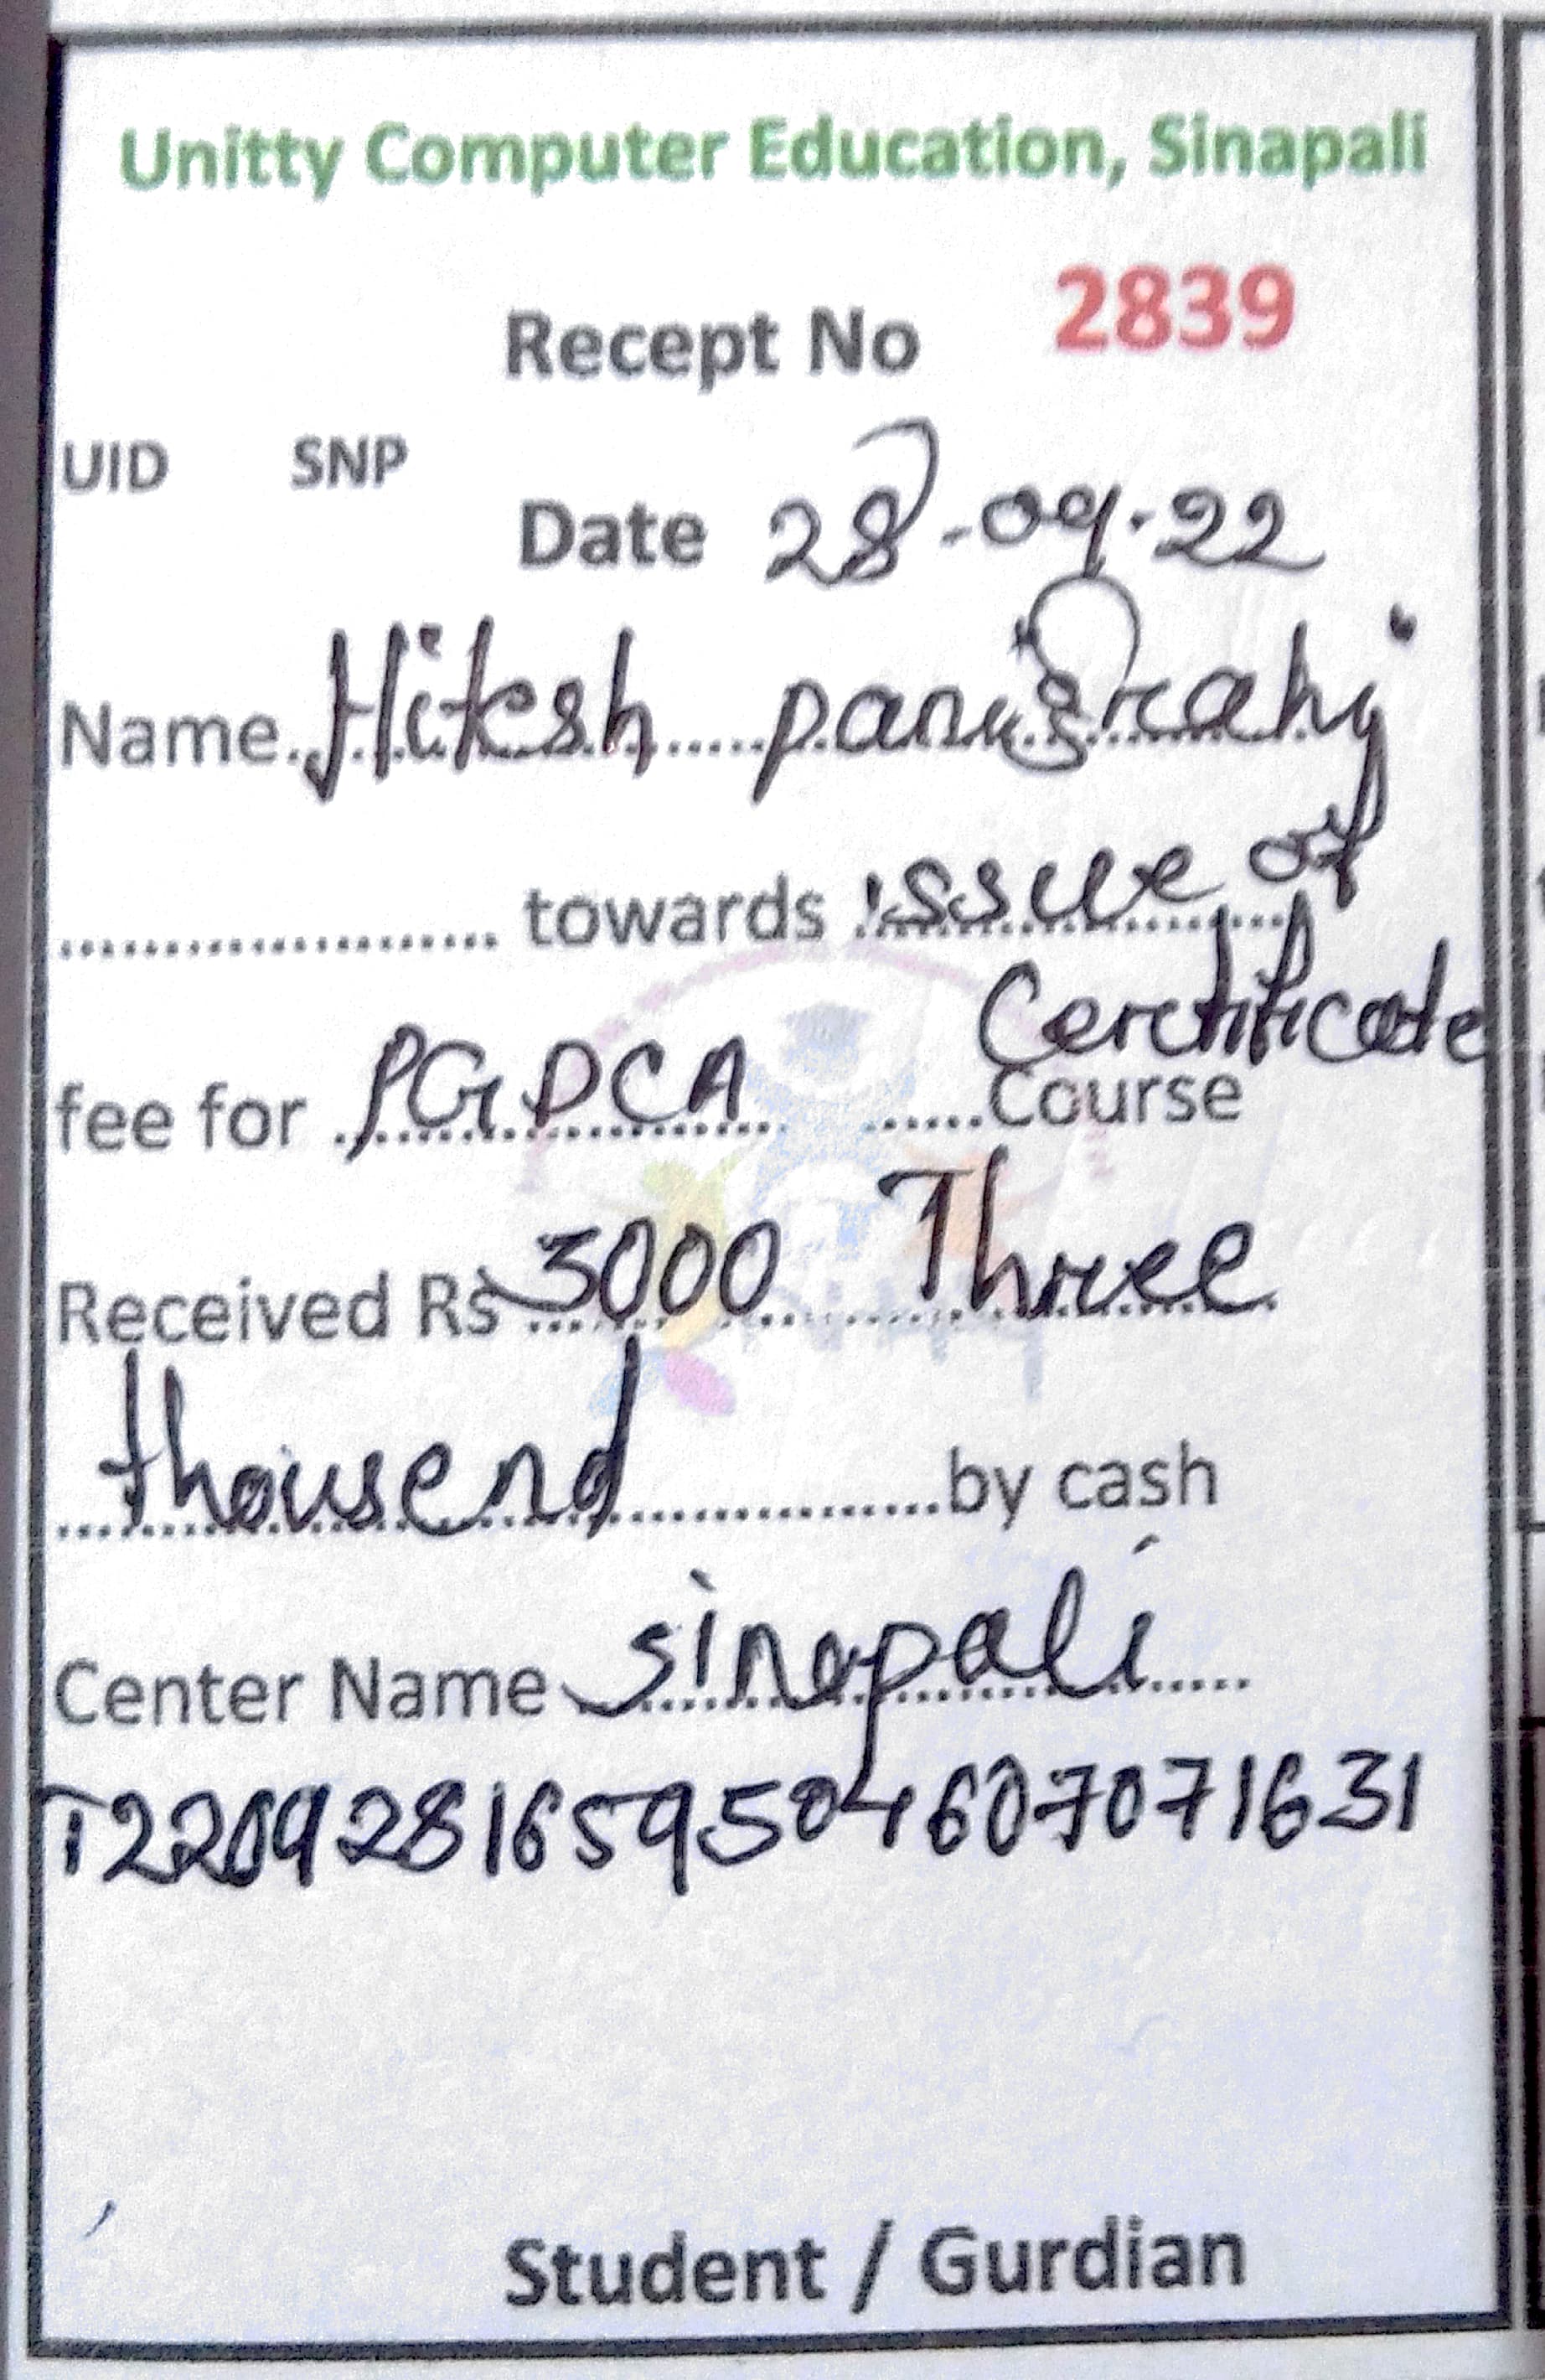 Unitty Computer Education, Sinapali
Recept No 2839
UID SNP
Date 28-09-22
Name Hitesh panigrahi
towards issue of
Certificate
fee for PGDCA Course
Received Rs 3000 Three
thousend by cash
Center Name sinapali
T2209281659504607071631
Student / Gurdian